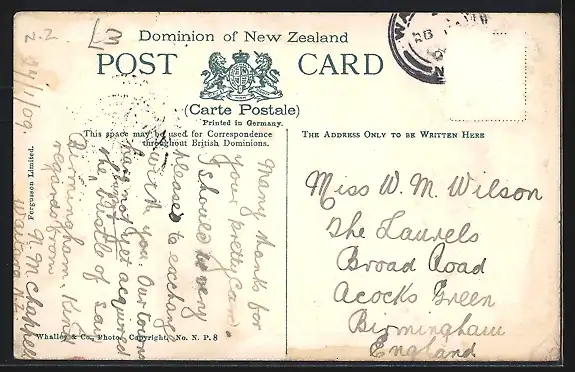 Dominion of New Zealand
POST CARD
(Carte Postale)
Printed in Germany.
This space may be used for Correspondence
throughout British Dominions.
THE ADDRESS ONLY TO BE WRITTEN HERE
Fergusson Limited.
Whalley & Co., Photo. Copyright, No. N. P. 8
N.Z.
24/1/09
Many thanks for
your pretty card.
I should be very
pleased to exchange
with you. Our town
has not yet acquired
the bustle of say
Birmingham. Kind
regards from
Miss W. M. Wilson
The Laurels
Broad Road
Acocks Green
Birmingham
England